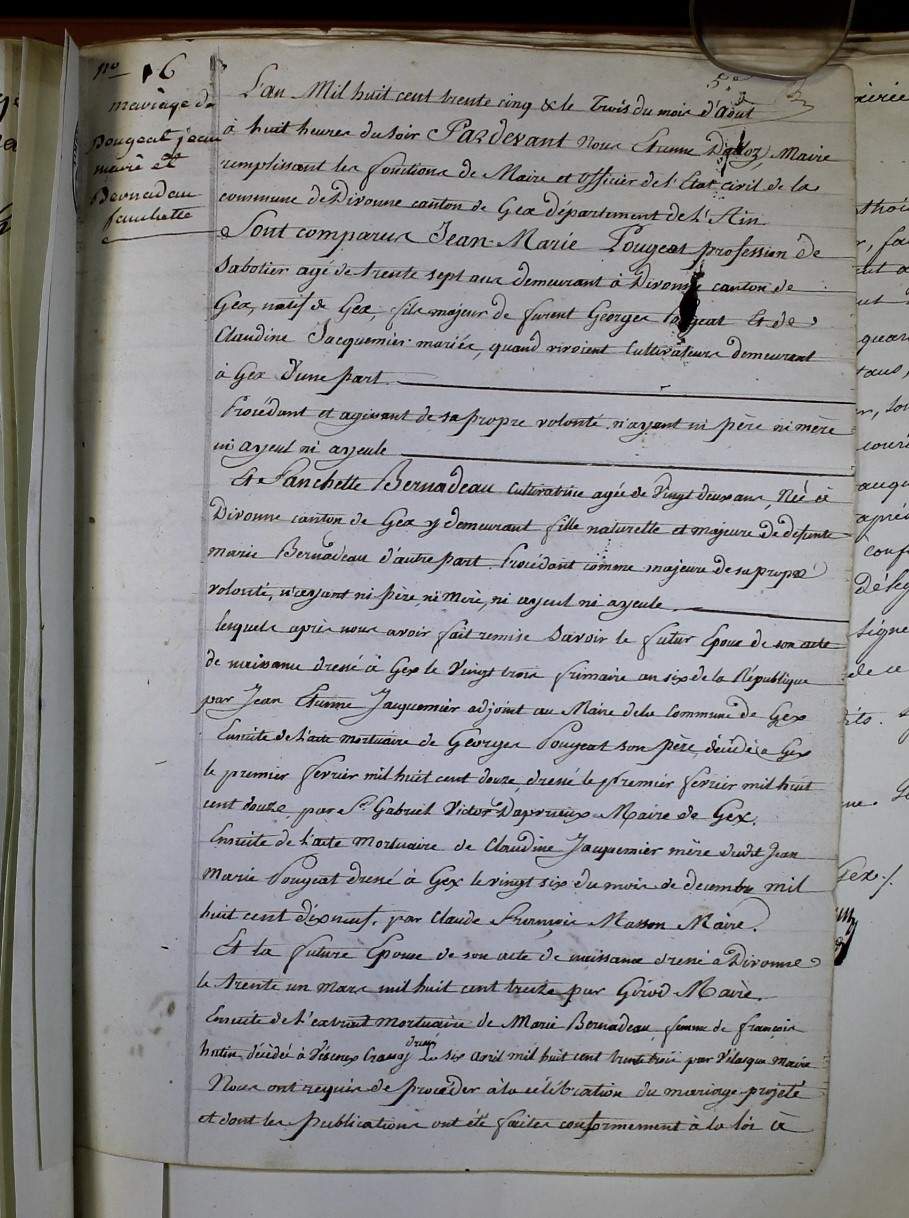 nº 16
mariage de
Pougeat jean
marie et
Bernadeau
fanchette
L'an Mil huit cent trente cinq & le Trois du mois d'Août
à huit heures du soir Pardevant Nous Etienne Maire
remplissant les fonctions de Maire et officier de l'Etat civil de la
commune de Divonne canton de Gex département de l'Ain
Sont comparus Jean Marie Pougeat profession de
Sabotier agé de trente sept ans demeurant à Divonne canton de
Gex, natif de Gex, fils majeur de furent Georges Pougeat Et de
Claudine Jacquemier mariés, quand vivoient Cultivateurs demeurant
à Gex d'une part
Procédant et agissant de sa propre volonté n'ayant ni père ni mère
ni ayeul ni ayeule
Et Fanchette Bernadeau Cultivatrice agée de Vingt deux ans, Née à
Divonne canton de Gex y demeurant fille naturelle et majeure de defunte
marie Bernadeau d'autre part. Procédant comme majeure de sa propre
volonté, n'ayant ni père, ni mère, ni ayeul ni ayeule
lesquels après nous avoir fait remise Savoir le futur Epoux de son acte
de naissance dressé à Gex le Vingt trois frimaire an six de la République
par Jean Etienne Jacquemier adjoint au Maire de la Commune de Gex
Ensuite de l'acte mortuaire de Georges Pougeat son père, décédé à Gex
le premier fevrier mil huit cent douze, dressé le premier fevrier mil huit
cent douze par Sr Gabriel Victor Maire de Gex.
Ensuite de l'acte Mortuaire de Claudine Jacquemier mère dudit Jean
Marie Pougeat dressé à Gex le vingt six du mois de decembre mil
huit cent dixneuf, par Claude François Masson Maire.
Et la future Epouse de son acte de naissance dressé à Divonne
le trente un Mars mil huit cent treize par Girod Maire.
Ensuite de l'extrait mortuaire de Marie Bernadeau, femme de françois
hutin, décédé à dressé Le six avril mil huit cent trente trois par Maire
Nous ont requis de proceder à la célébration du mariage projeté
et dont les publications ont été faites conformement à la loi à